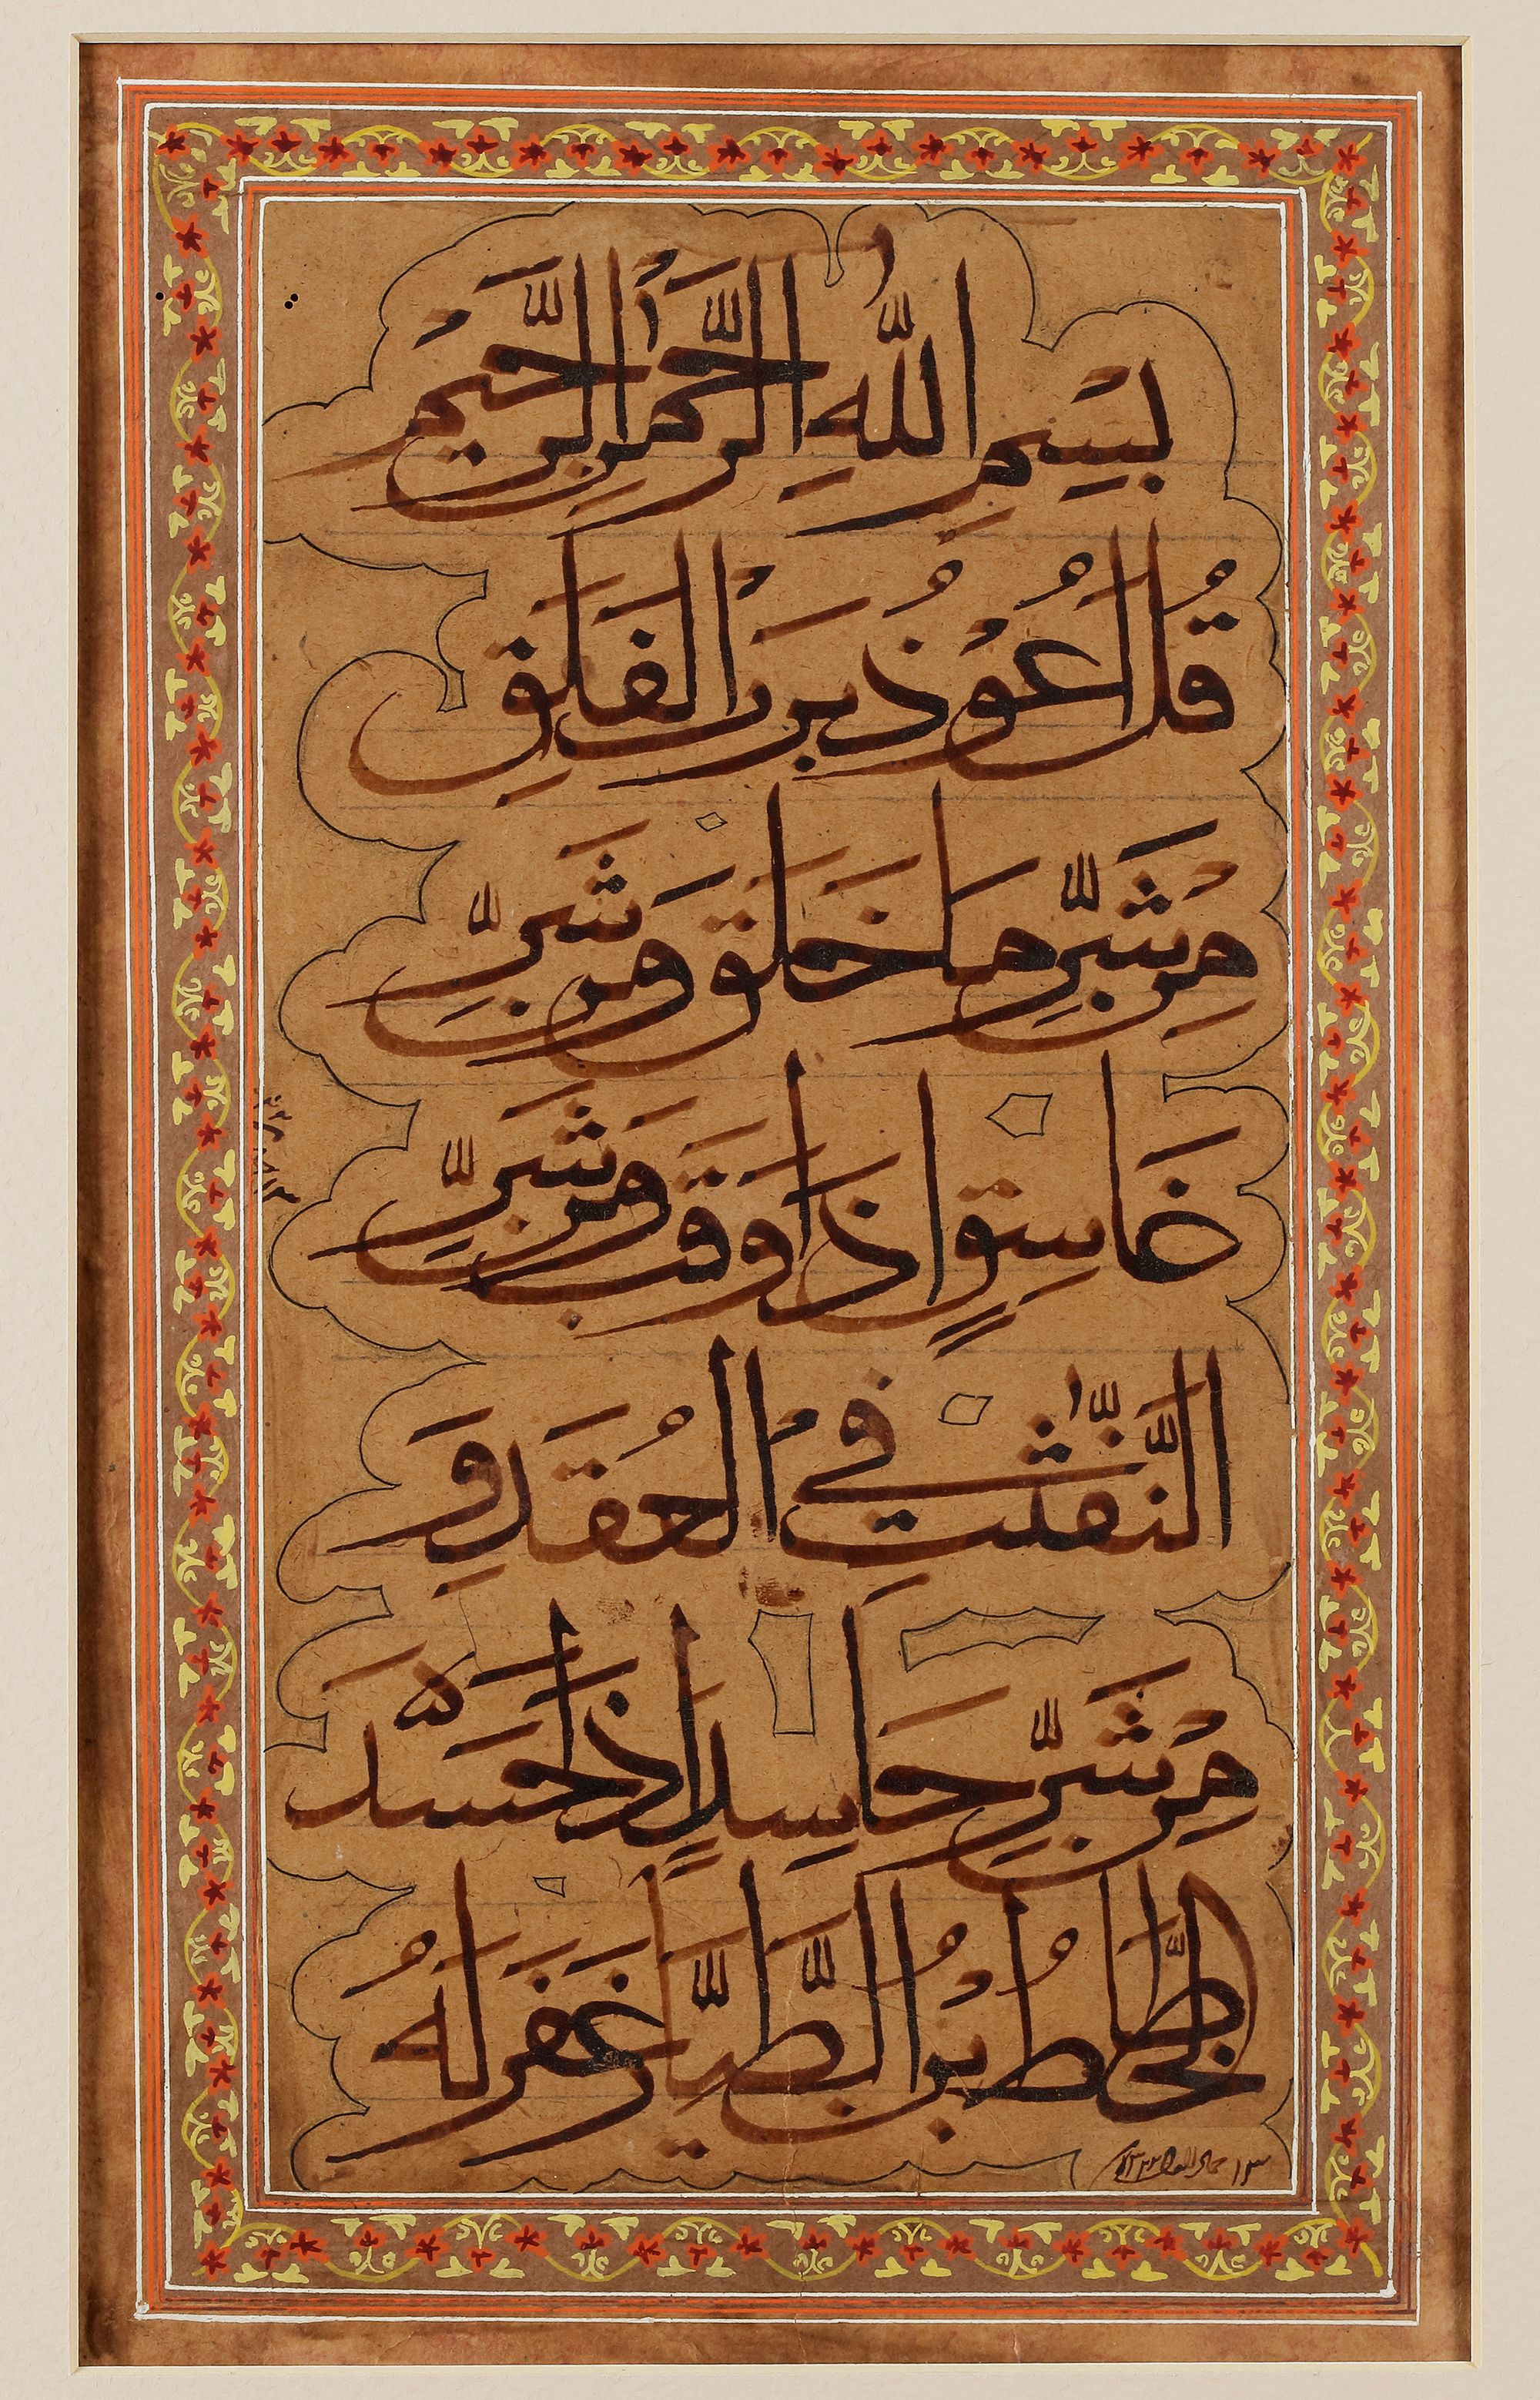 بِسْمِ اللّٰهِ الرَّحْمٰنِ الرَّحِيْمِ
قُلْ اَعُوْذُ بِرَبِّ الْفَلَقِ
مِنْ شَرِّ مَا خَلَقَ وَمِنْ شَرِّ
غَاسِقٍ اِذَا وَقَبَ وَمِنْ شَرِّ
النَّفّٰثٰتِ فِي الْعُقَدِ وَ
مِنْ شَرِّ حَاسِدٍ اِذَا حَسَدَ
الخَطَّاطُ بْنُ الطَّيَّا غَفَرَ لَهُ